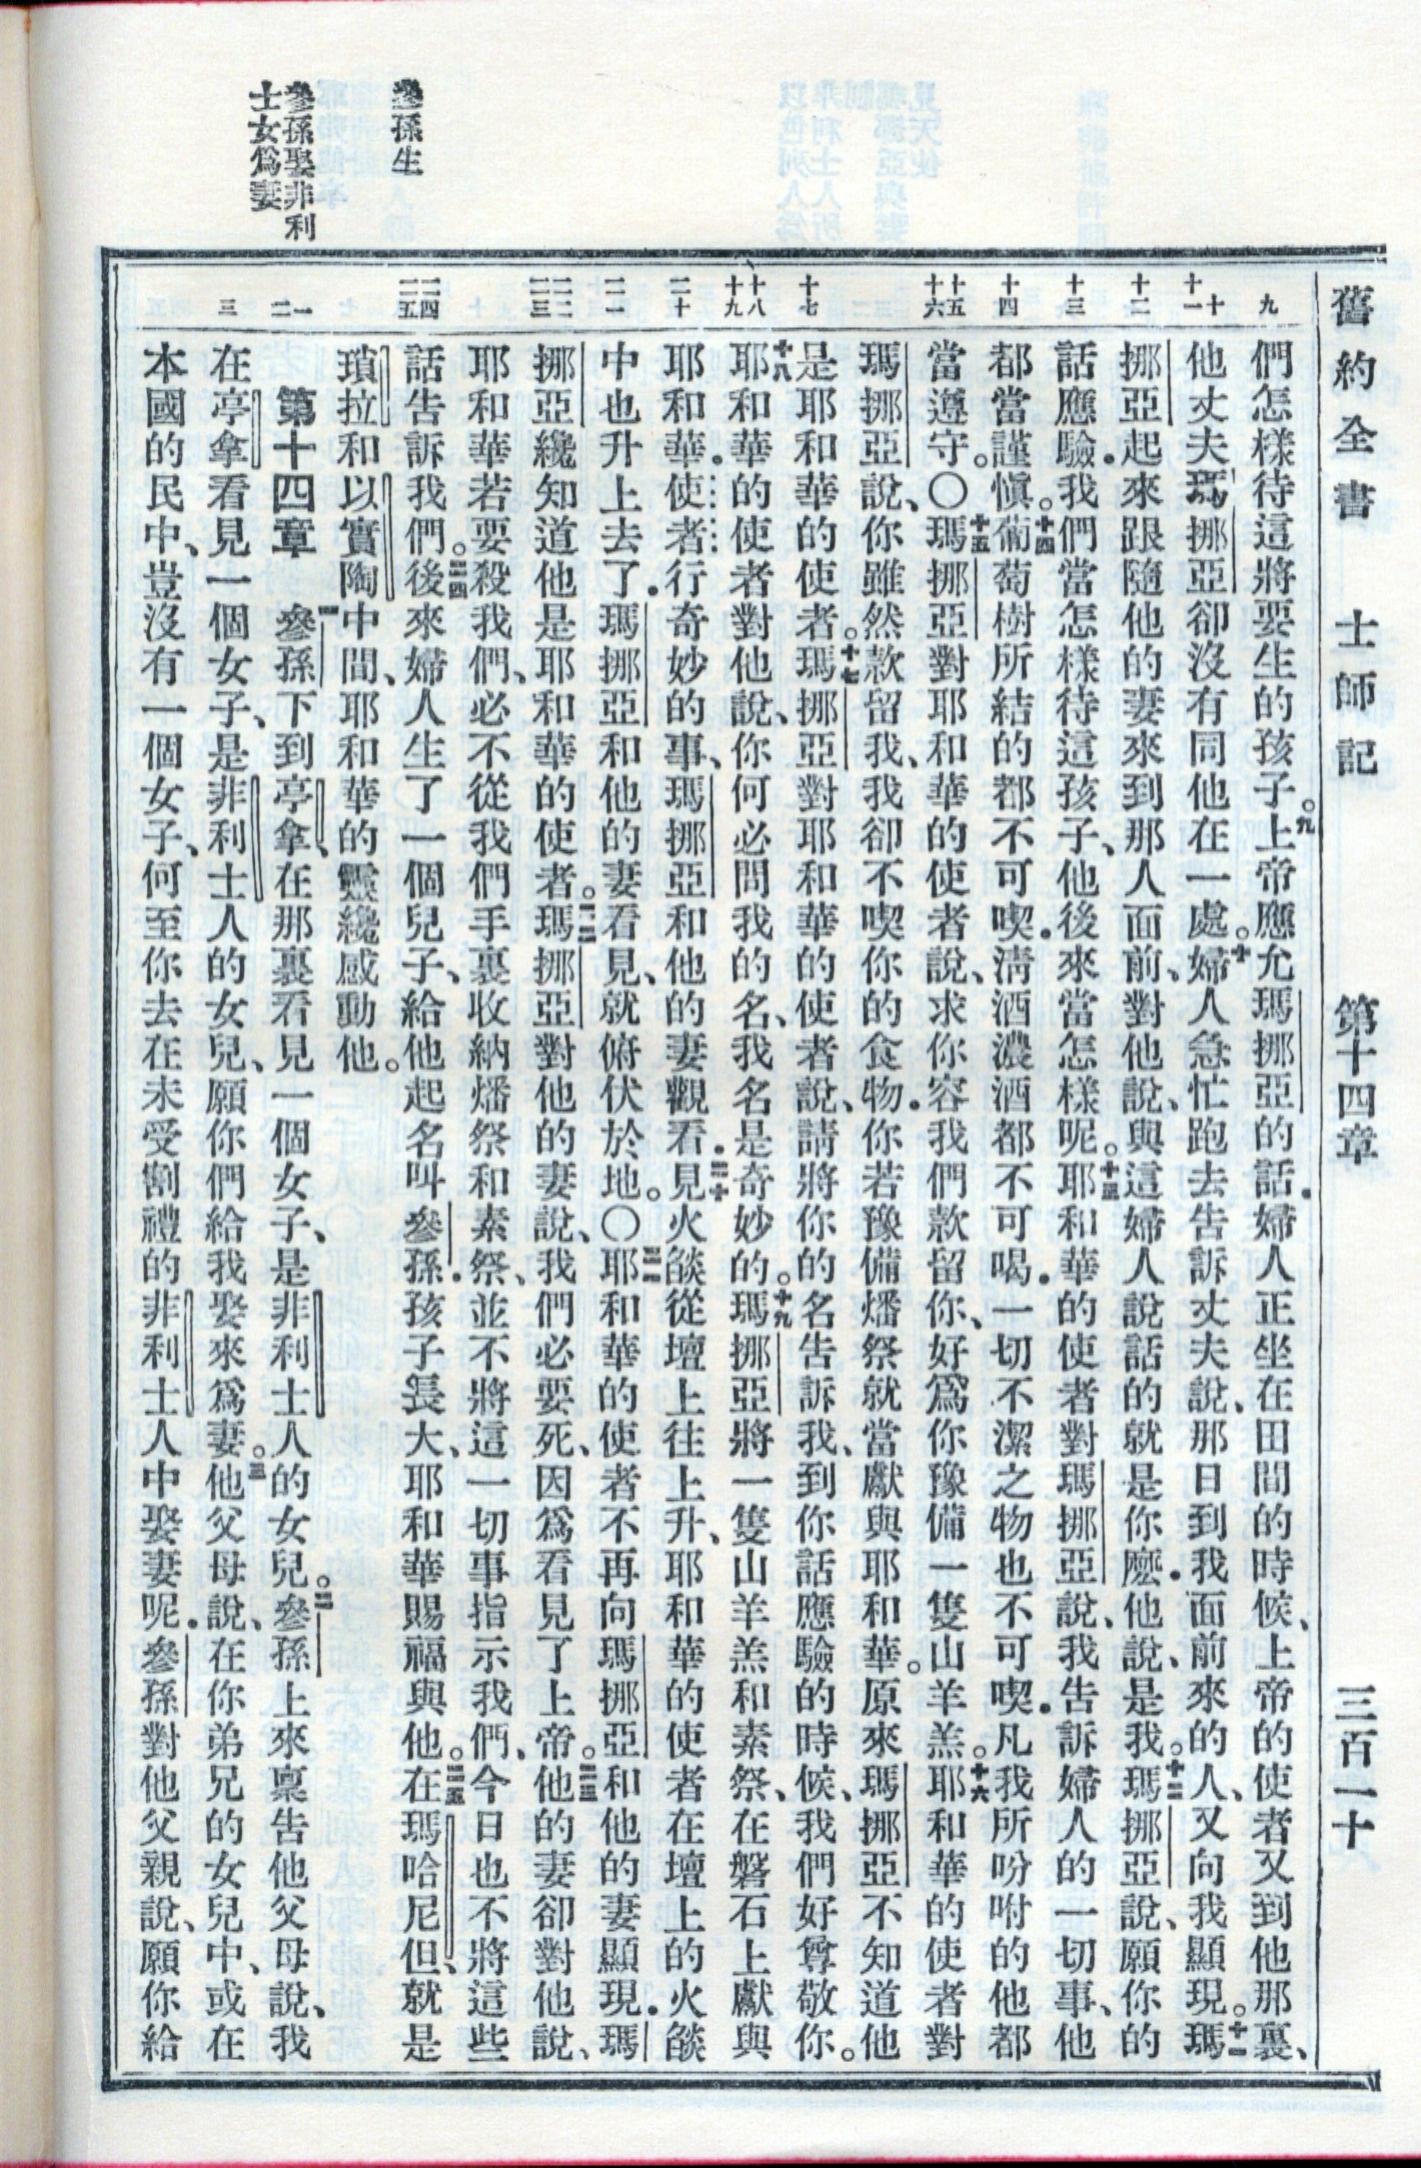 舊約全書 士師記 第十四章 三百一十
參孫生
參孫娶非利
士女爲妻
九
十
十一
十二
十三
十四
十五
十六
十七
十八
十九
二十
二一
二二
二三
二四
二五
一
二
三
們怎樣待這將要生的孩子。九上帝應允瑪挪亞的話.婦人正坐在田間的時候、上帝的使者又到他那裏、
他丈夫瑪挪亞卻沒有同他在一處。十婦人急忙跑去告訴丈夫說、那日到我面前來的人、又向我顯現。十一瑪
挪亞起來跟隨他的妻來到那人面前、對他說、與這婦人說話的就是你麽.他說、是我。十二瑪挪亞說、願你的
話應驗.我們當怎樣待這孩子、他後來當怎樣呢。十三耶和華的使者對瑪挪亞說、我告訴婦人的一切事、他
都當謹愼。十四葡萄樹所結的都不可喫.淸酒濃酒都不可喝.一切不潔之物也不可喫.凡我所吩咐的他都
當遵守。〇十五瑪挪亞對耶和華的使者說、求你容我們款留你、好爲你豫備一隻山羊羔。十六耶和華的使者對
瑪挪亞說、你雖然款留我、我卻不喫你的食物.你若豫備燔祭就當獻與耶和華。原來瑪挪亞不知道他
是耶和華的使者。十七瑪挪亞對耶和華的使者說、請將你的名告訴我、到你話應驗的時候、我們好尊敬你。
十八耶和華的使者對他說、你何必問我的名、我名是奇妙的。十九瑪挪亞將一隻山羊羔和素祭、在磐石上獻與
耶和華.使者行奇妙的事、瑪挪亞和他的妻觀看.二十見火燄從壇上往上升、耶和華的使者在壇上的火燄
中也升上去了.瑪挪亞和他的妻看見、就俯伏於地。〇二一耶和華的使者不再向瑪挪亞和他的妻顯現.瑪
挪亞纔知道他是耶和華的使者。二二瑪挪亞對他的妻說、我們必要死、因爲看見了上帝。二三他的妻卻對他說、
耶和華若要殺我們、必不從我們手裏收納燔祭和素祭、並不將這一切事指示我們、今日也不將這些
話告訴我們。二四後來婦人生了一個兒子、給他起名叫參孫.孩子長大、耶和華賜福與他。二五在瑪哈尼但、就是
瑣拉和以實陶中間、耶和華的靈纔感動他。
第十四章 一參孫下到亭拿、在那裏看見一個女子、是非利士人的女兒。二參孫上來稟告他父母說、我
在亭拿看見一個女子、是非利士人的女兒、願你們給我娶來爲妻。三他父母說、在你弟兄的女兒中、或在
本國的民中、豈沒有一個女子、何至你去在未受割禮的非利士人中娶妻呢.參孫對他父親說、願你給